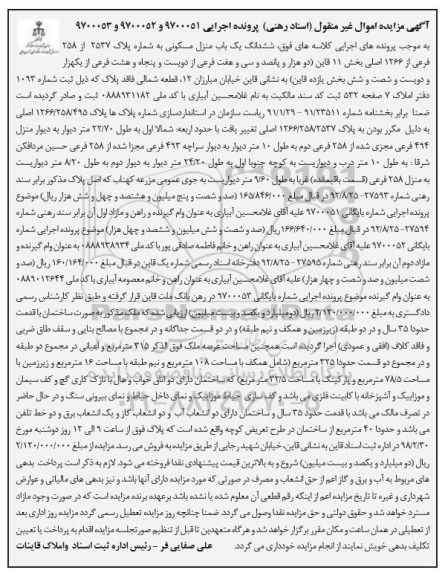 آگهی مزایده اموال غیر منقول (اسناد رهنی) پرونده اجرایی ۹۷۰۰۰۵۱ و ۹۷۰۰۰۵۲ و ۹۷۰۰۰۵۳
به موجب پرونده های اجرایی کلاسه های فوق، ششدانگ یک باب منزل مسکونی به شماره پلاک ۲۵۳۷ از ۲۵۸
فرعی از ۱۲۶۶ اصلی بخش ۱۱ قاین (دو هزار و پانصد و سی و هفت فرعی از دویست و پنجاه و هشت فرعی از یکهزار
و دویست و شصت و شش بخش یازده قاین) به نشانی قاین خیابان مبارزان ۱۲، قطعه شمالی فاقد پلاک که ذیل ثبت شماره ۱۰۹۳
دفتر املاک ۷ صفحه ۵۳۲ ثبت کد سند مالکیت به نام غلامحسین آبیاری با کد ملی ۰۸۸۸۹۳۱۱۸۲ ثبت و صادر گردیده است
ضمنا برابر بخشنامه شماره ۹۱/۲۳۵۱۱ - ۹۱/۱/۲۹ ریاست سازمان در استانداردسازی شماره پلاک ها پلاک ۱۲۶۶/۲۵۸/۴۹۵ اصلی
به دلیل مکرر بودن به پلاک ۱۲۶۶/۲۵۸/۲۵۳۷ اصلی تغییر یافت با حدود اربعه: شمالا اول به طول ۲۲/۷۰ متر دیوار به دیوار منزل
۴۹۴ فرعی مجزی شده از ۲۵۸ فرعی دوم به طول ۱۰ متر دیوار به دیوار سراچه ۴۹۳ فرعی مجزا شده از ۲۵۸ فرعی حسین مردافکن
شرقا : به طول ۱۰ متر درب و دیواریست به کوچه جنوبا اول به طول ۲۴/۲۰ متر دیوار به دیوار دوم به طول ۸/۲۰ متر دیواریست
به منزل ۲۵۸ فرعی (قسمت باقیمانده) غربا به طول ۹/۶۰ متر دیواریست به جوی عمومی مزرعه کهناب که اصل پلاک مذکور برابر سند
رهنی شماره ۲۷۵۹۳-۹۲/۸/۲۵ در قبال مبلغ ۱۶۵/۸۴۶/۰۰۰ (صد و شصت و پنج میلیون و هشتصد و چهل و شش هزار ریال) موضوع
پرونده اجرایی شماره بایگانی ۹۷۰۰۰۵۱ علیه آقای غلامحسین آبیاری به عنوان وام گیرنده و راهن و مازاد اول آن برابر سند رهنی شماره
۲۷۵۹۴-۹۲/۸/۲۵ در قبال مبلغ ۱۶۶/۶۴۰/۰۰۰ ریال (صد و شصت و شش میلیون و ششصد و چهل هزار) موضوع پرونده اجرایی شماره
بایگانی ۹۷۰۰۰۵۲ علیه آقای غلامحسین آبیاری به عنوان راهن و خانم فاطمه صادقی پور با کد ملی ۰۸۸۸۹۳۸۹۳۴ به عنوان وام گیرنده و
مازاد دوم آن برابر سند رهنی شماره ۲۷۵۹۵-۹۲/۸/۲۵ دفترخانه اسناد رسمی شماره یک قاین در قبال مبلغ ۱۶۰/۱۶۴/۰۰۰ ریال (صد و
شصت میلیون و صد و شصت و چهار هزار) علیه آقای غلامحسین آبیاری به عنوان راهن و خانم معصومه آبیاری با کد ملی ۰۸۸۹۰۱۲۶۴۴
به عنوان وام گیرنده موضوع پرونده اجرایی شماره بایگانی ۹۷۰۰۰۵۳ در رهن بانک ملت قاین قرار گرفته و طبق نظر کارشناس رسمی
دادگستری به مبلغ ۲/۱۲۰/۰۰۰/۰۰۰ ریال (دو میلیارد و یکصد و بیست میلیون) ارزیابی شده که ملک مذکور به صورت ساختمان با قدمت
حدودا ۳۵ سال و در دو طبقه (زیرزمین و همکف و نیم طبقه) و در دو قسمت جداگانه و در مجموع با مصالح بنایی و سقف طاق ضربی
و فاقد کلاف (افقی و عمودی) اجرا گردیده است همچنین مساحت عرصه ملک فوق الذکر ۳۱۵ مترمربع و اعیانی در مجموع دو طبقه
و در مجموع دو قسمت حدودا ۳۲۵ مترمربع (شامل همکف با مساحت ۱۰۸ مترمربع و نیم طبقه با مساحت ۱۶ مترمربع و زیرزمین با
مساحت ۷۸/۵ مترمربع و پارکینگ با مساحت ۳۲/۵ متر مربع) که ساختمان دارای دو اتاق خواب و هال با نازک کاری گچ و کف سیمان
و موزاییک و آشپزخانه با کابینت فلزی می باشد و کف سازی حیاط موزاییک و نمای داخل حیاط و نمای بیرونی سنگ و در حال حاضر
در تصرف مالک می باشد با قدمت حدود ۳۵ سال و ساختمان دارای دو انشعاب آب و دو انشعاب گاز و یک انشعاب برق و دو خط تلفن
می باشد و حدودا ۴۰ مترمربع از ساختمان در طرح تعریض کوچه واقع شده است که پلاک فوق از ساعت ۹ الی ۱۲ روز دوشنبه مورخ
۹۸/۲/۳۰ در اداره ثبت اسناد قاین به نشانی قاین، خیابان شهید رجایی از طریق مزایده به فروش می رسد. مزایده از مبلغ ۲/۱۲۰/۰۰۰/۰۰۰
ریال (دو میلیارد و یکصد و بیست میلیون) شروع و به بالاترین قیمت پیشنهادی نقدا فروخته می شود. لازم به ذکر است پرداخت بدهی
های مربوط به آب و برق و گاز اعم از حق انشعاب و مصرف در صورتی که مورد مزایده دارای آنها باشد و نیز بدهی های مالیاتی و عوارض
شهرداری و غیره تا تاریخ مزایده اعم از اینکه رقم قطعی آن معلوم شده یا نشده باشد برعهده برنده مزایده است که در صورت وجود مازاد
مسترد خواهد شد و حقوق دولتی و حق مزایده نقدا وصول می گردد. ضمنا چنانچه روز مزایده تعطیل رسمی گردد مزایده روز اداری بعد
از تعطیلی در همان ساعت و مکان مقرر برگزار خواهد شد و هرگاه متعهدین تا قبل از تنظیم صورتجلسه مزایده اقدام به پرداخت یا تعیین
تکلیف بدهی خویش نمایند از انجام مزایده خودداری می گردد. علی صفایی فر - رئیس اداره ثبت اسناد واملاک قاینات